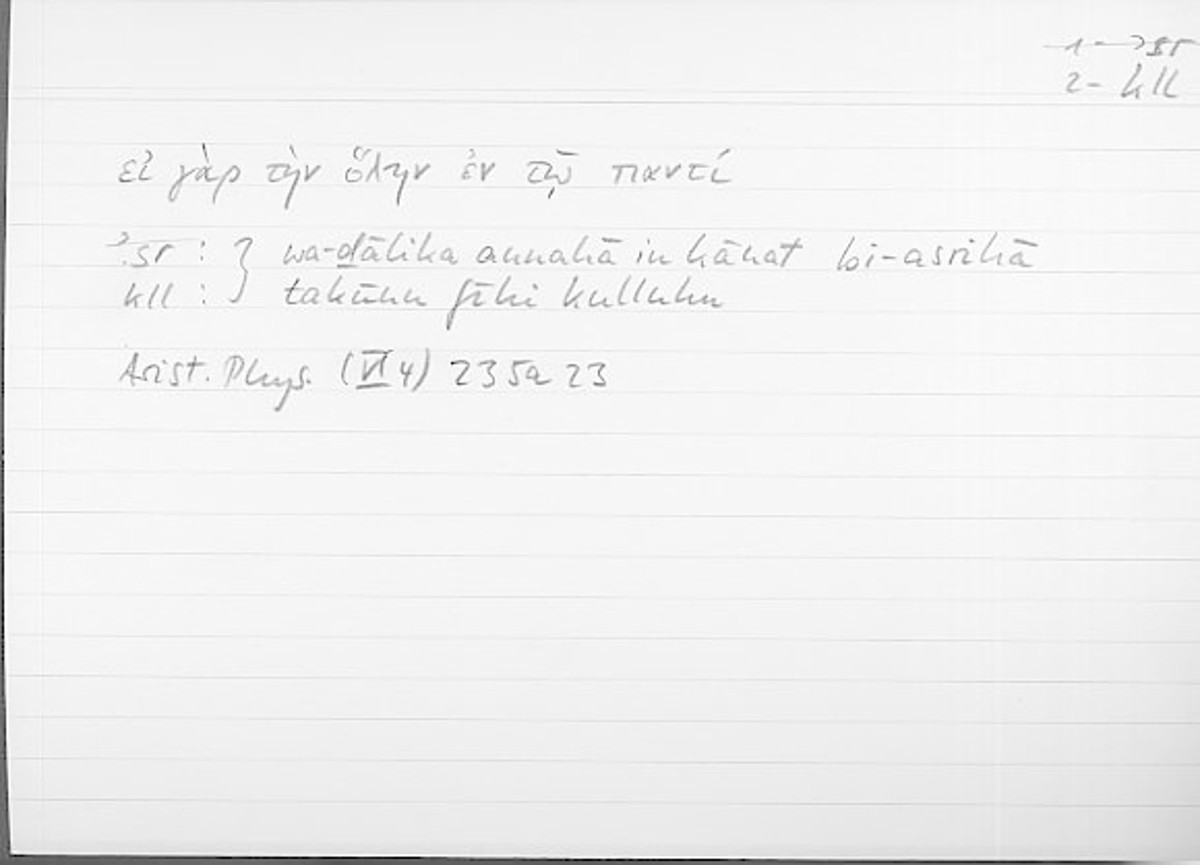 1- ʾsr
2- kll
εἰ γὰρ τὴν ὅλην ἐν τῷ παντί
ʾsr : } wa-ḏālika annahā in kānat bi-asrihā
kll : } takūnu fīhi kulluhu
Arist. Phys. (VI 4) 235a 23